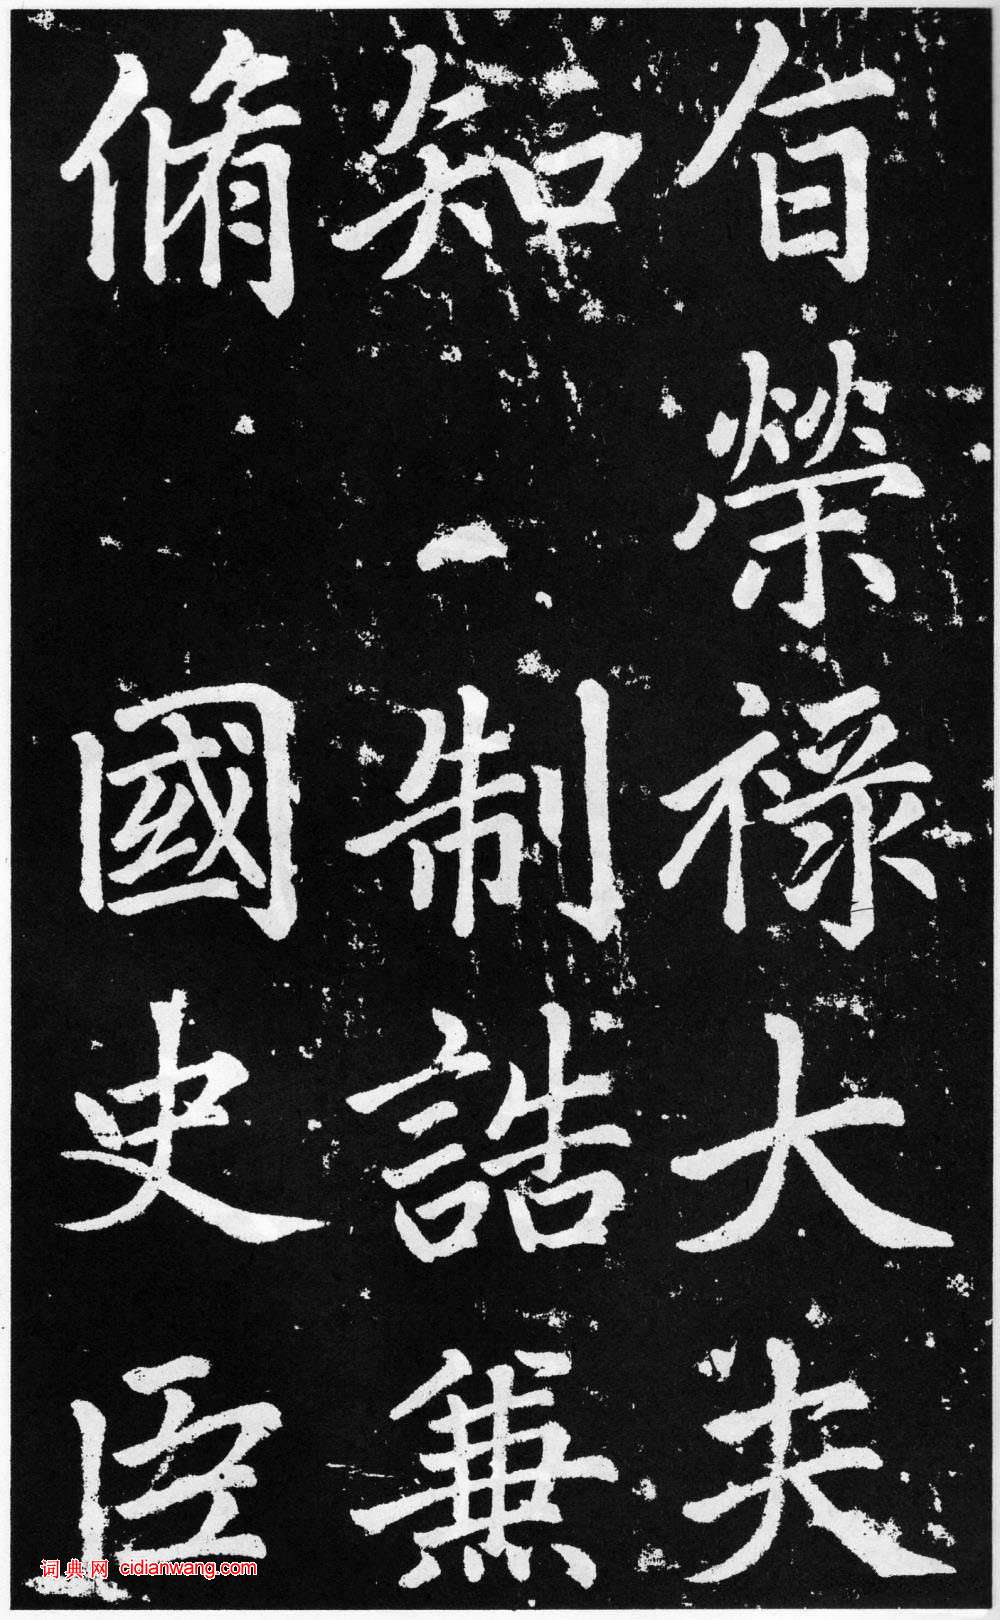 百榮祿大夫
知 制誥兼
脩 國史臣
词典网 cidianwang.com